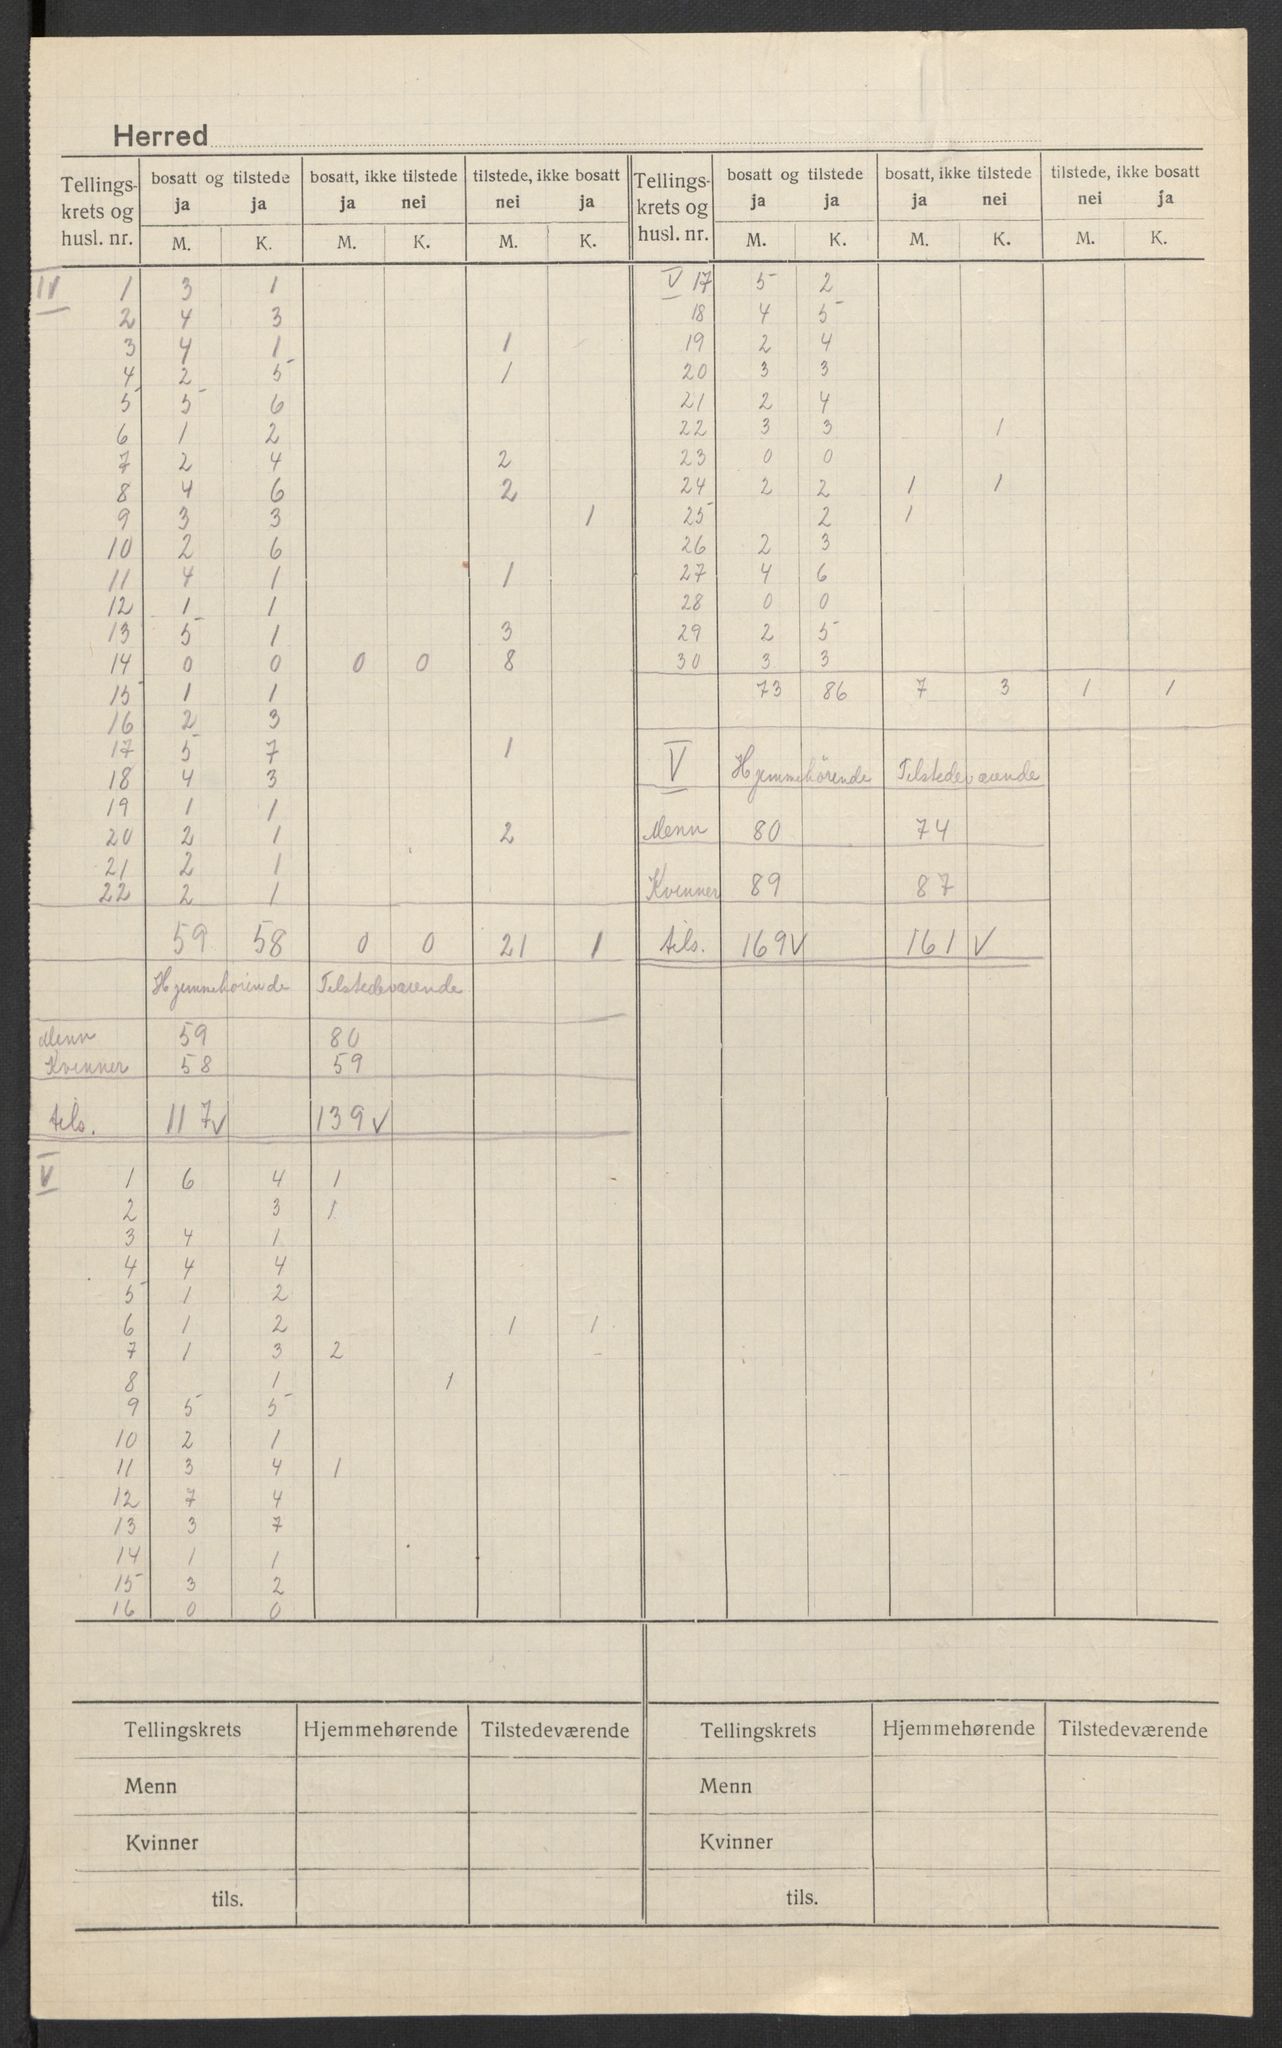 Herred
Tellings- krets og husl. nr. | bosatt og tilstede ja ja | bosatt, ikke tilstede ja nei | tilstede, ikke bosatt nei ja
M. K. M. K. M. K.
IV 1 3 1
2 4 3
3 4 1 1
4 2 5 1
5 5 6
6 1 2
7 2 4 2
8 4 6 2
9 3 3 1
10 2 6
11 4 1 1
12 1 1
13 5 1 3
14 0 0 0 0 8
15 1 1
16 2 3
17 5 7 1
18 4 3
19 1 1
20 2 1 2
21 2 1
22 2 1
59 58 0 0 21 1
Hjemmehørende Tilstedeværende
Menn 59 80
Kvinner 58 59
tils. 117 V 139 V
V 1 6 4 1
2 3 1
3 4 1
4 4 4
5 1 2
6 1 2 1 1
7 1 3 2 -
8 1 1
9 5 5
10 2 1
11 3 4 1
12 7 4
13 3 7
14 1 1
15 3 2
16 0 0
Tellings- krets og husl. nr. | bosatt og tilstede ja ja | bosatt, ikke tilstede ja nei | tilstede, ikke bosatt nei ja
M. K. M. K. M. K.
V 17 5 2
18 4 5
19 2 4
20 3 3
21 2 4
22 3 3 1
23 0 0
24 2 2 1 1
25 2 1
26 2 3
27 4 6
28 0 0
29 2 5
30 3 3
73 86 7 3 1 1
V Hjemmehörende Tilstedeværende
Menn 80 74
Kvinner 89 87
tils. 169 V 161 V
Tellingskrets Hjemmehørende Tilstedeværende
Menn
Kvinner
tils.
Tellingskrets Hjemmehørende Tilstedeværende
Menn
Kvinner
tils.